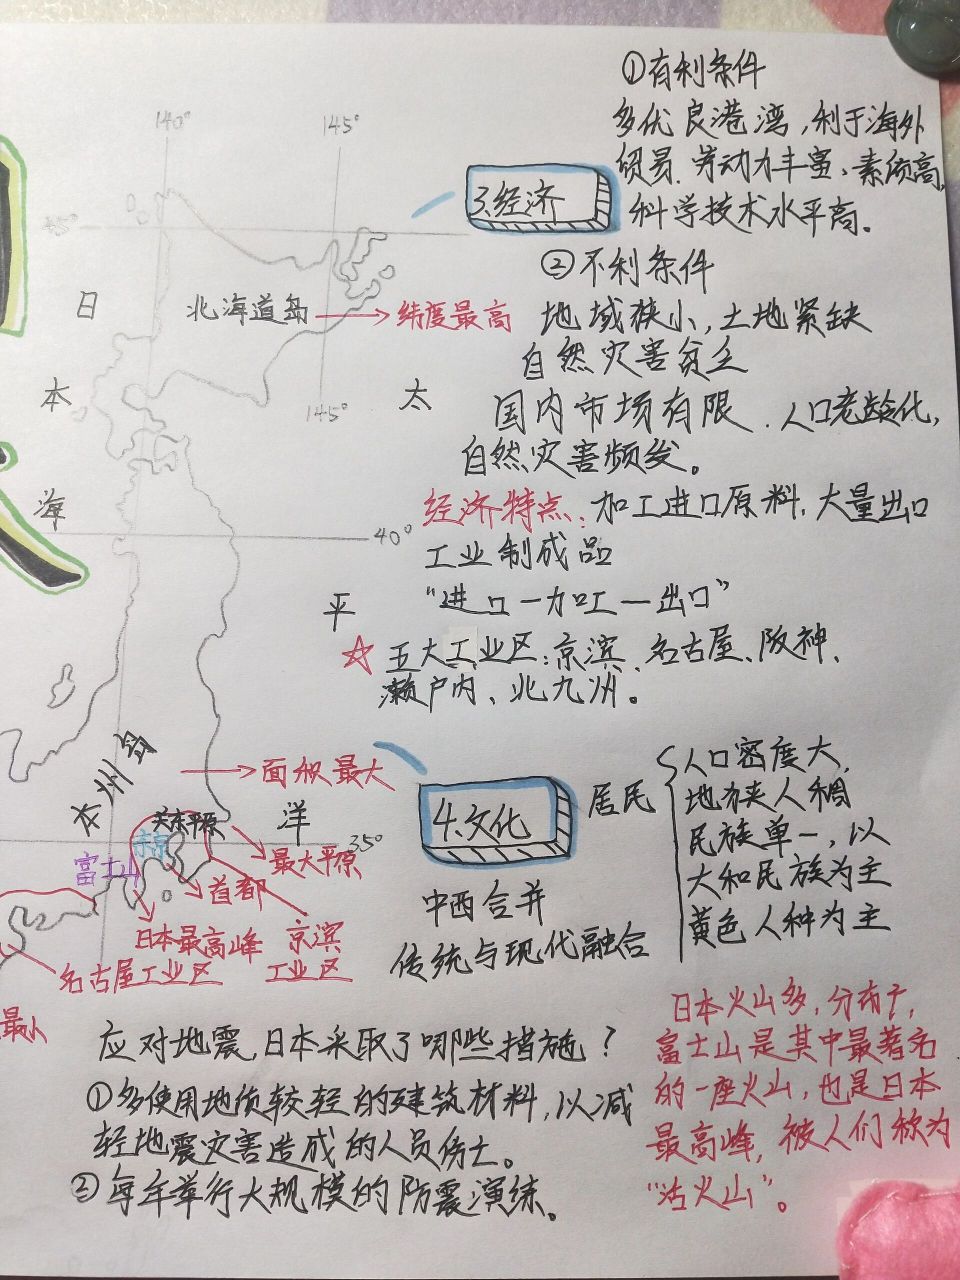 ①有利条件
多优良港湾,利于海外
贸易.劳动力丰富、素质高,
科学技术水平高。
3.经济
②不利条件
地域狭小,土地紧缺
自然灾害贫乏
国内市场有限.人口老龄化,
自然灾害频发。
经济特点:加工进口原料,大量出口
工业制成品
“进口—加工—出口”
☆五大工业区:京滨、名古屋、阪神、
濑户内、北九州。
140°
145°
45°
日
北海道岛→纬度最高
本
太
145°
海
40°
平
本州岛
→面积最大
洋
35°
关东平原
东京
富士山
最大平原
首都
日本最高峰
京滨
工业区
名古屋工业区
最小
4.文化
中西合并
传统与现代融合
居民
人口密度大,
地狭人稠
民族单一,以
大和民族为主
黄色人种为主
应对地震,日本采取了哪些措施?
①多使用地质较轻的建筑材料,以减
轻地震灾害造成的人员伤亡。
②每年举行大规模的防震演练。
日本火山多,分布广,
富士山是其中最著名
的一座火山,也是日本
最高峰,被人们称为
“活火山”。